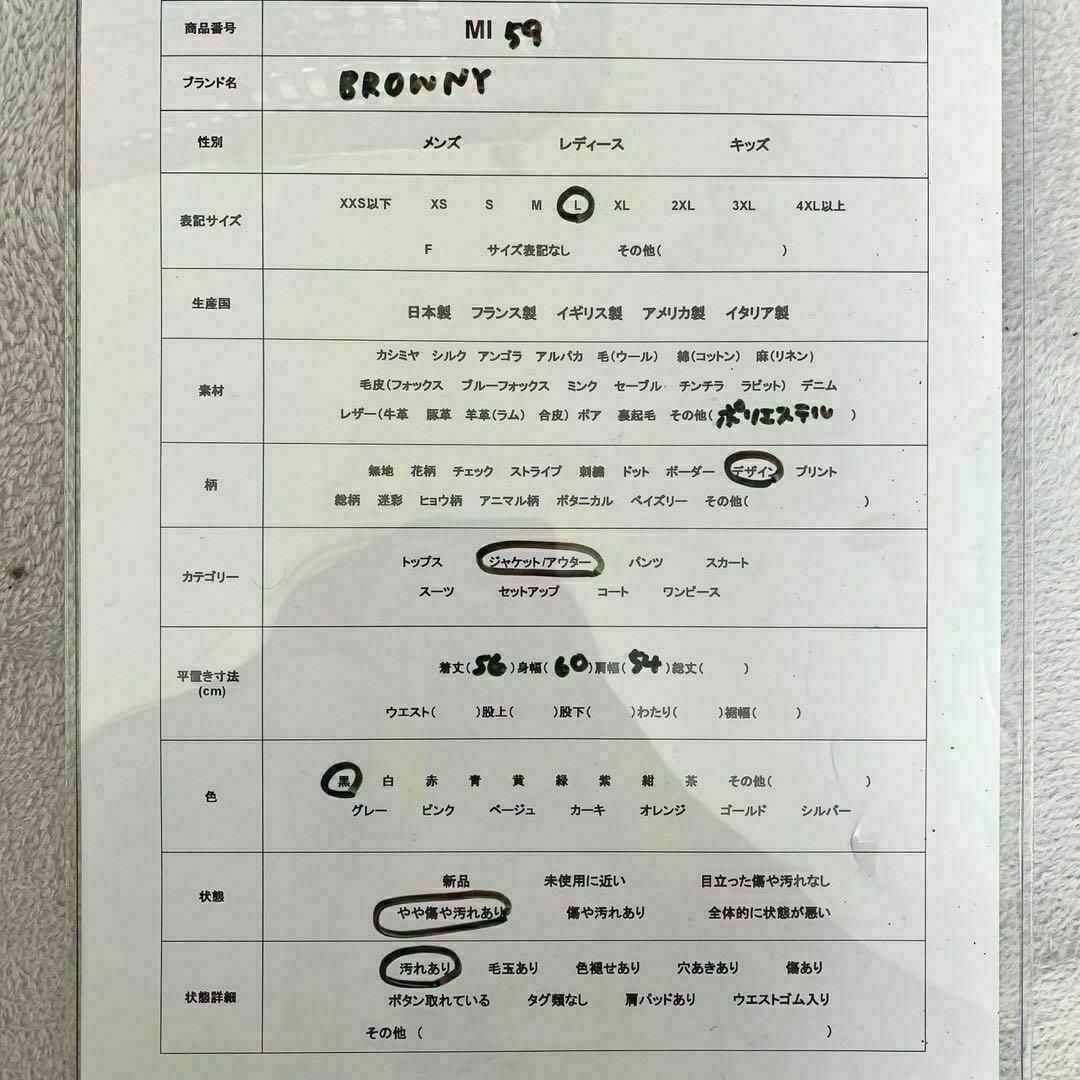 商品番号 MI 59
ブランド名 BROWNY
性別 メンズ レディース キッズ
表記サイズ XXS以下 XS S M L XL 2XL 3XL 4XL以上
F サイズ表記なし その他( )
生産国 日本製 フランス製 イギリス製 アメリカ製 イタリア製
素材 カシミヤ シルク アンゴラ アルパカ 毛(ウール) 綿(コットン) 麻(リネン)
毛皮(フォックス ブルーフォックス ミンク セーブル チンチラ ラビット) デニム
レザー(牛革 豚革 羊革(ラム) 合皮) ボア 裏起毛 その他( ポリエステル )
柄 無地 花柄 チェック ストライプ 刺繍 ドット ボーダー デザイン プリント
総柄 迷彩 ヒョウ柄 アニマル柄 ボタニカル ペイズリー その他( )
カテゴリー トップス ジャケット/アウター パンツ スカート
スーツ セットアップ コート ワンピース
平置き寸法 (cm) 着丈( 56 )身幅( 60 )肩幅( 54 )総丈( )
ウエスト( )股上( )股下( )わたり( )裾幅( )
色 黒 白 赤 青 黄 緑 紫 紺 茶 その他( )
グレー ピンク ベージュ カーキ オレンジ ゴールド シルバー
状態 新品 未使用に近い 目立った傷や汚れなし
やや傷や汚れあり 傷や汚れあり 全体的に状態が悪い
状態詳細 汚れあり 毛玉あり 色褪せあり 穴あきあり 傷あり
ボタン取れている タグ類なし 肩パッドあり ウエストゴム入り
その他 ( )